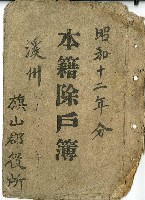 昭和十二年分
本籍除戶簿
溪州
旗山郡役所